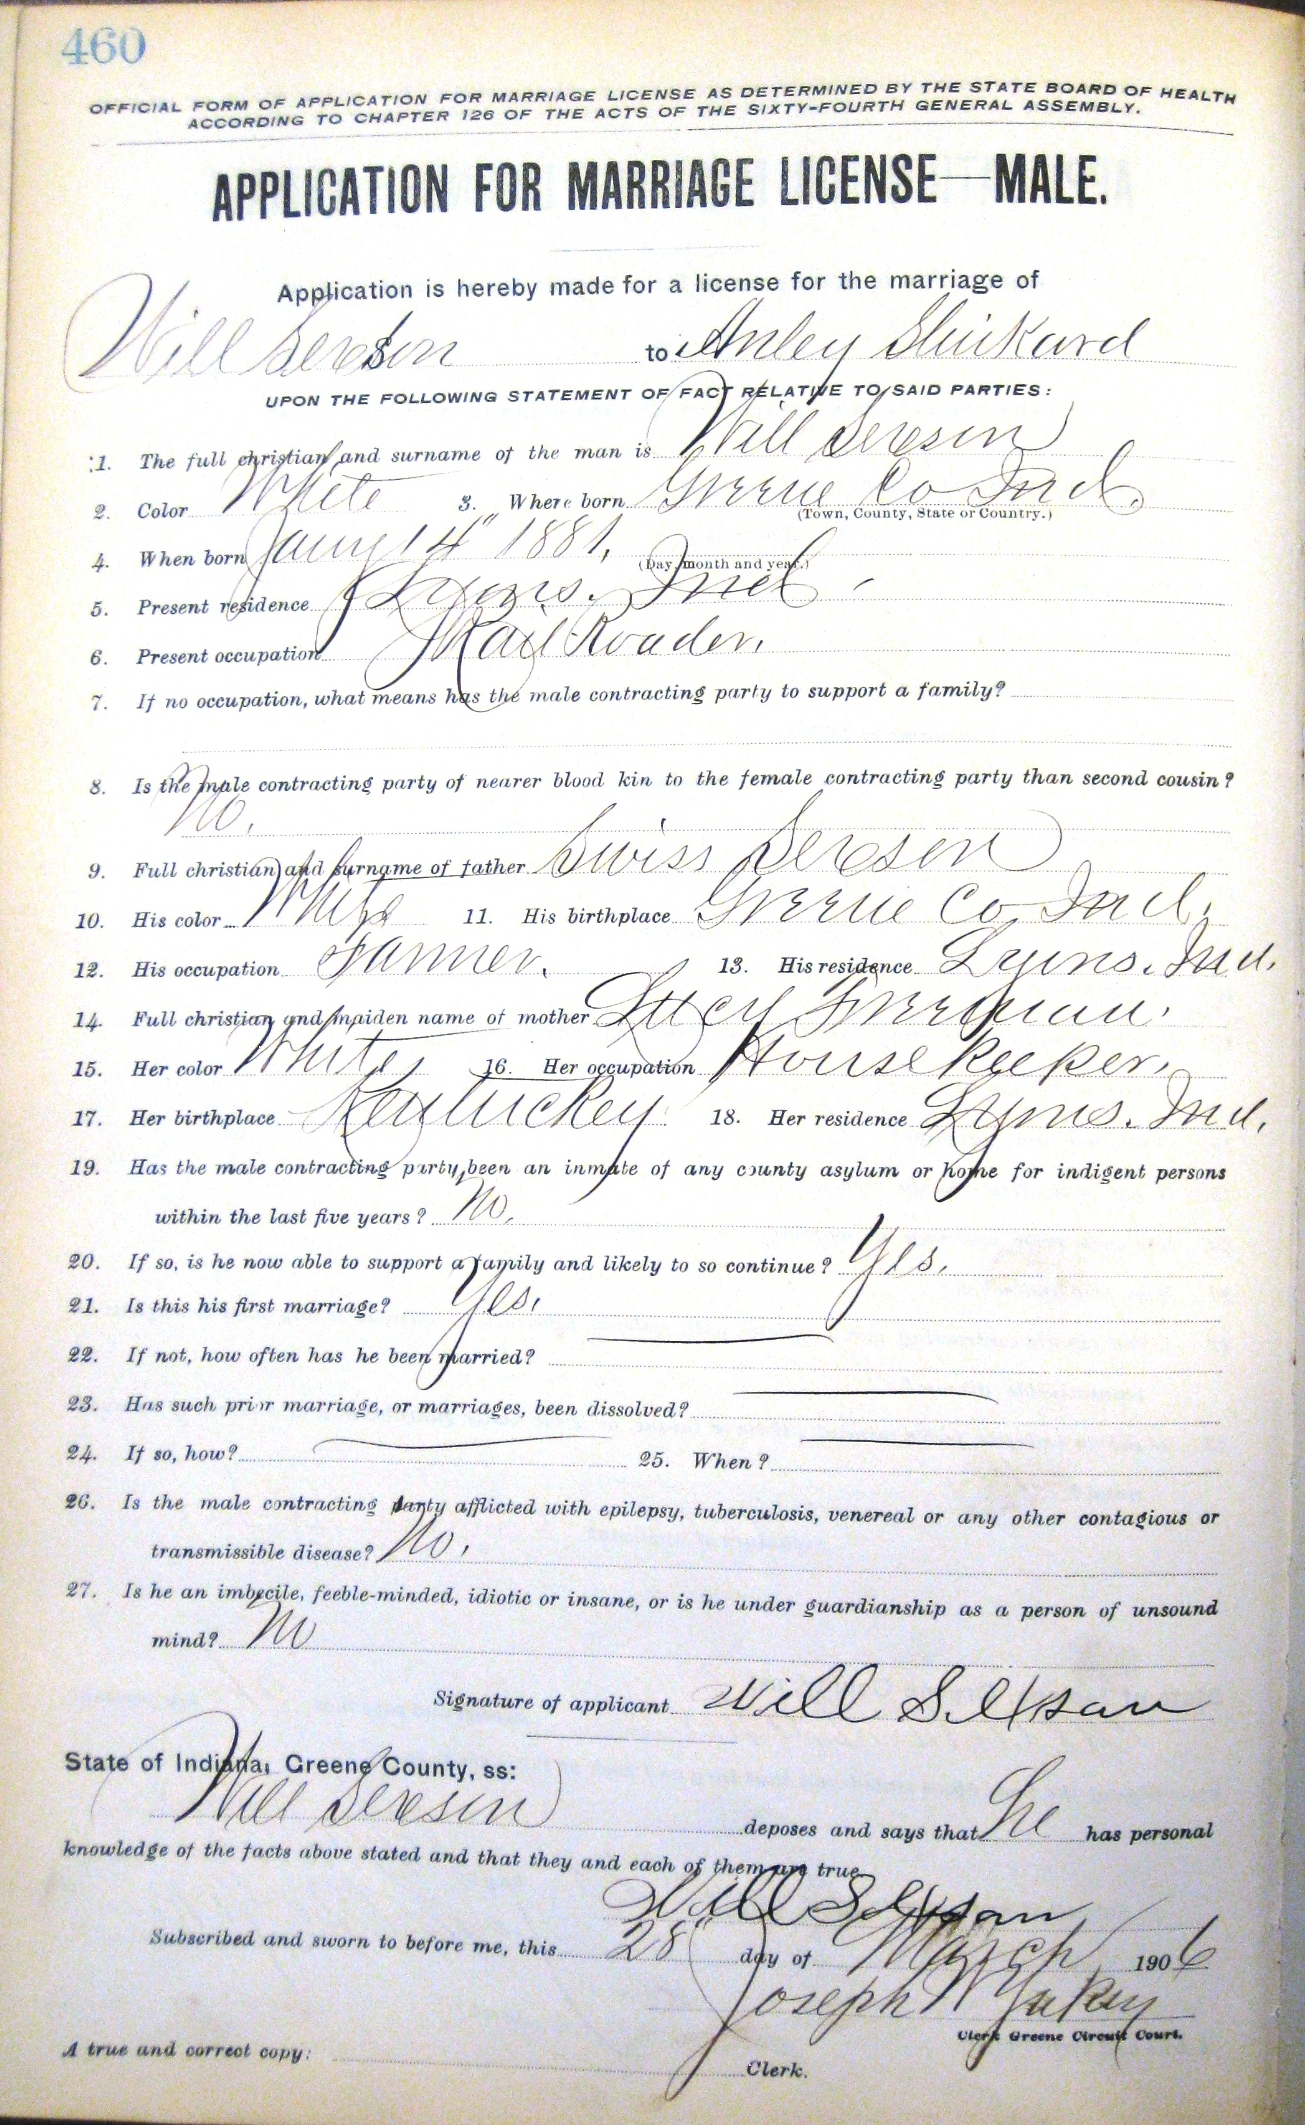 460
OFFICIAL FORM OF APPLICATION FOR MARRIAGE LICENSE AS DETERMINED BY THE STATE BOARD OF HEALTH
ACCORDING TO CHAPTER 126 OF THE ACTS OF THE SIXTY-FOURTH GENERAL ASSEMBLY.
APPLICATION FOR MARRIAGE LICENSE—MALE.
Application is hereby made for a license for the marriage of
Will to
UPON THE FOLLOWING STATEMENT OF FACT RELATIVE TO SAID PARTIES:
1. The full christian and surname of the man is Will Sexson
2. Color White 3. Where born Greene Co Ind.
(Town, County, State or Country.)
4. When born Jany 14" 1881.
(Day, month and year.)
5. Present residence Lyons. Ind.
6. Present occupation Rail Roader.
7. If no occupation, what means has the male contracting party to support a family?
8. Is the male contracting party of nearer blood kin to the female contracting party than second cousin?
No.
9. Full christian and surname of father Swiss Sexson
10. His color White 11. His birthplace Greene Co. Ind.
12. His occupation Farmer. 13. His residence Lyons. Ind.
14. Full christian and maiden name of mother Lucy Freeman.
15. Her color White 16. Her occupation House Keeper.
17. Her birthplace Kentuckey 18. Her residence Lyons. Ind.
19. Has the male contracting party been an inmate of any county asylum or home for indigent persons
within the last five years? No.
20. If so, is he now able to support a family and likely to so continue? Yes.
21. Is this his first marriage? Yes.
22. If not, how often has he been married?
23. Has such prior marriage, or marriages, been dissolved?
24. If so, how? 25. When?
26. Is the male contracting party afflicted with epilepsy, tuberculosis, venereal or any other contagious or
transmissible disease? No.
27. Is he an imbecile, feeble-minded, idiotic or insane, or is he under guardianship as a person of unsound
mind? No
Signature of applicant Will Sexson
State of Indiana, Greene County, ss:
Will Sexson deposes and says that he has personal
knowledge of the facts above stated and that they and each of them are true
Will Sexson
Subscribed and sworn to before me, this 28" day of March 1906
Joseph W Yakey
Clerk Greene Circuit Court.
A true and correct copy: Clerk.